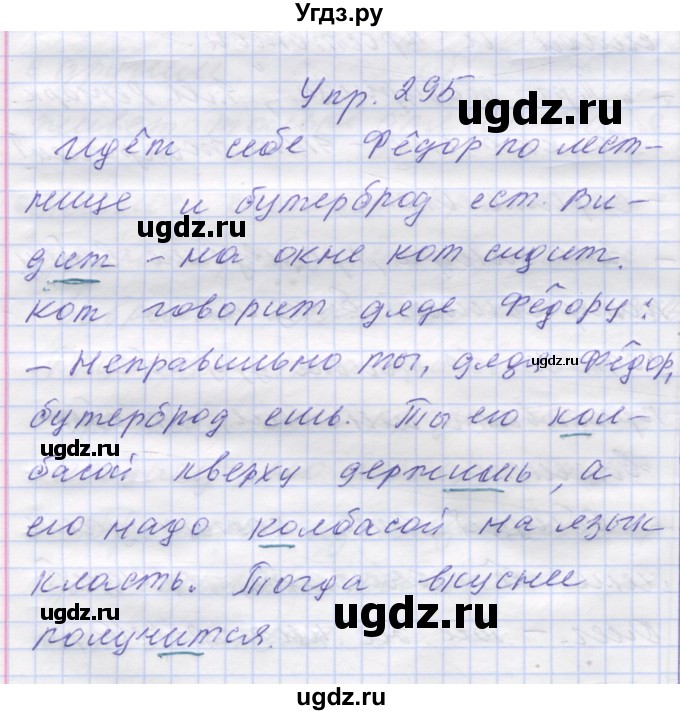 Угдз.ру
Упр. 295
Идёт себе Фёдор по лест-
нице и бутерброд ест. Ви-
дит – на окне кот сидит.
Кот говорит дяде Фёдору:
– Неправильно ты, дядя Фёдор,
бутерброд ешь. Ты его кол-
басой кверху держишь, а
его надо колбасой на язык
класть. Тогда вкуснее
получится.
ugdz.ru
ugdz.ru
ugdz.ru
ugdz.ru
ugdz.ru
ugdz.ru
ugdz.ru
ugdz.ru
ugdz.ru
ugdz.ru
ugdz.ru